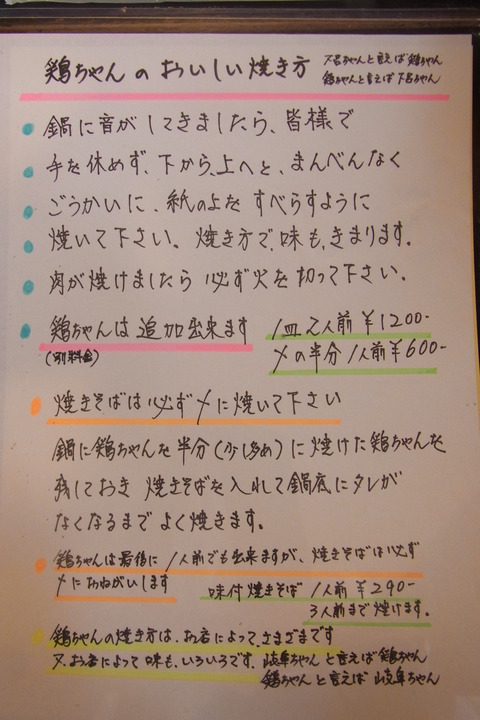 鶏ちゃんのおいしい焼き方
下呂ちゃんと言えば鶏ちゃん
鶏ちゃんと言えば下呂ちゃん
鍋に音がしてきましたら、皆様で
手を休めず、下から上へと、まんべんなく
ごうかいに、紙の上を すべらすように
焼いて下さい。焼き方で、味も、きまります。
肉が焼けましたら 必ず火を切って下さい。
鶏ちゃんは追加出来ます
(別料金)
1皿2人前¥1200-
〆の半分1人前¥600-
焼きそばは必ず〆に焼いて下さい
鍋に鶏ちゃんを半分(少し多め)に焼けた鶏ちゃんを
残しておき 焼きそばを入れて鍋底にタレが
なくなるまで よく焼きます。
鶏ちゃんは最後に1人前でも出来ますが、焼きそばは必ず
〆におねがいします
味付焼きそば 1人前¥290-
3人前まで焼けます。
鶏ちゃんの焼き方は、お店によって、さまざまです
又、お店によって味も、いろいろです。岐阜ちゃんと言えば鶏ちゃん
鶏ちゃんと言えば岐阜ちゃん